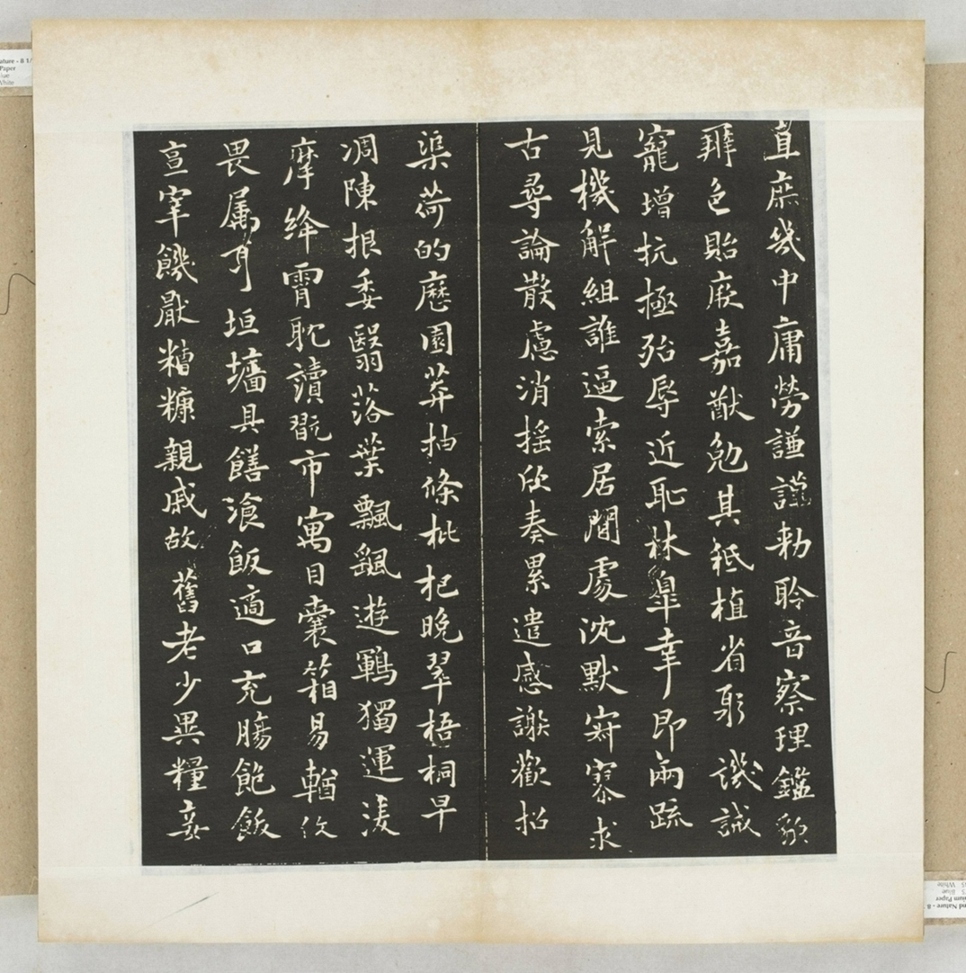 直庶幾中庸勞謙謹勅聆音察理鑑貌
辨色貽厥嘉猷勉其祗植省躬譏誡
寵增抗極殆辱近恥林皐幸即兩疏
見機解組誰逼索居閒處沈默寂寥求
古尋論散慮消搖欣奏累遣感謝歡招
渠荷的歷園莽抽條枇杷晚翠梧桐早
凋陳根委翳落葉飄颻遊鵾獨運淩
摩絳霄耽讀翫市寓目囊箱易輶攸
畏属耳垣墻具饍飡飯適口充腸飽飫
亯宰饑厭糟糠親戚故舊老少異糧妾
Paper
White